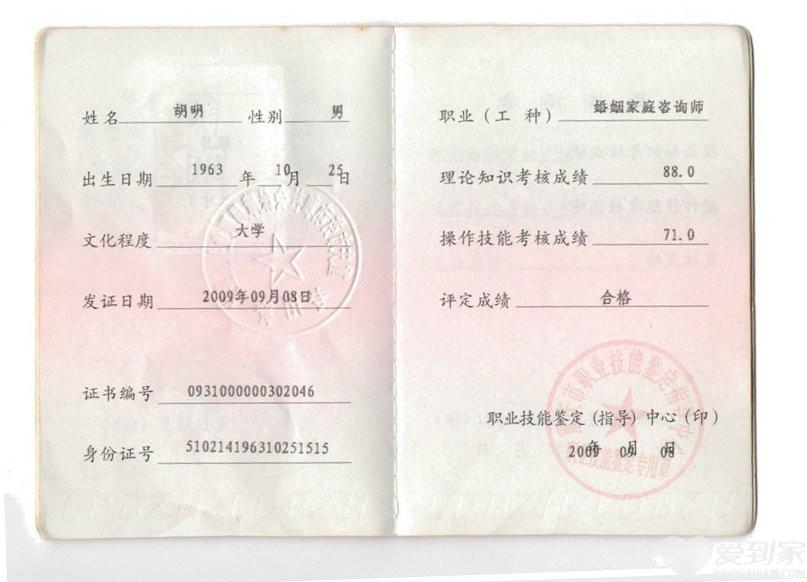 姓名 胡明 性别 男
出生日期 1963 年 10 月 25 日
文化程度 大学
发证日期 2009年09月08日
证书编号 0931000000302046
身份证号 510214196310251515
职业（工 种） 婚姻家庭咨询师
理论知识考核成绩 88.0
操作技能考核成绩 71.0
评定成绩 合格
市职业技能鉴定指导中心
职业技能鉴定专用章
职业技能鉴定（指导）中心（印）
2009 年 09 月 08 日
爱到家